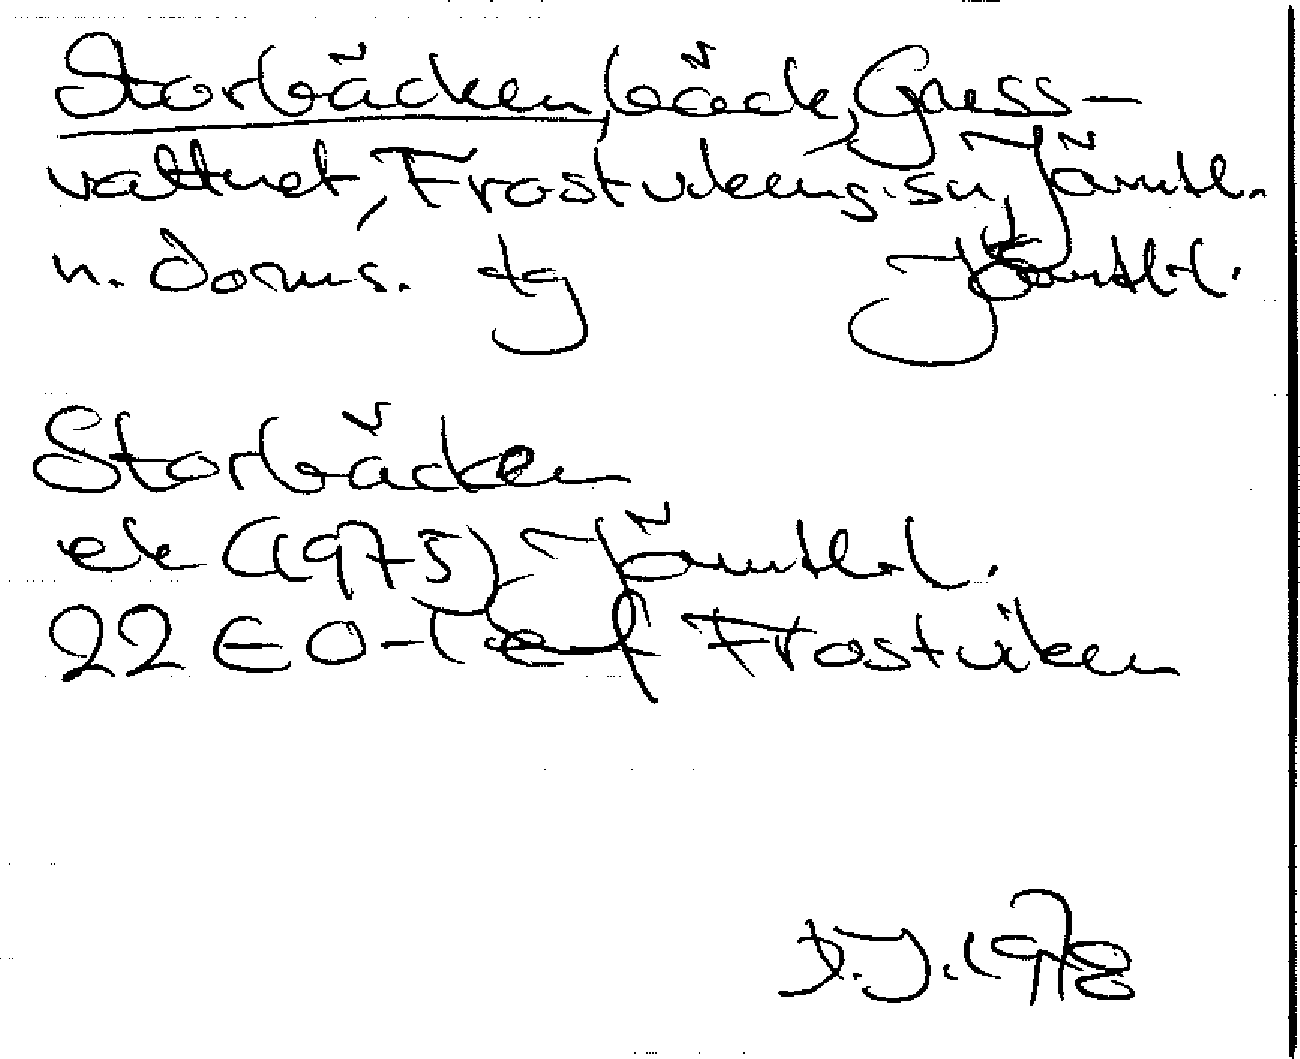 Storbäcken, bäck, Gräss-
vattnet, Frostvikens sn, Jämtl.
n. doms. tg Jämtl. l.
Storbäcken
ek (1975) Jämtl. l.
22 E 0-1 ef Frostviken
D.J. 1978